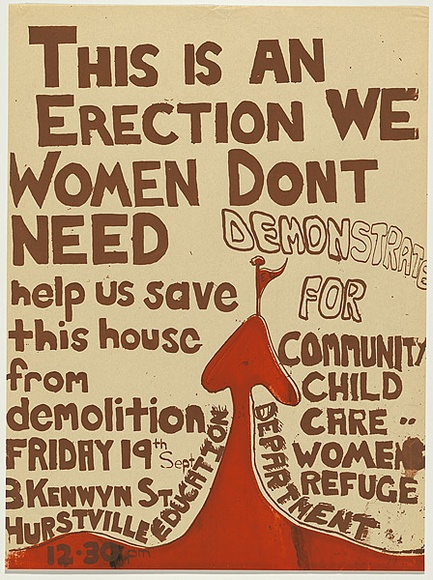 THIS IS AN
ERECTION WE
WOMEN DONT
NEED
DEMONSTRATE
FOR
help us save
this house
from
demolition
FRIDAY 19th Sept
3 KENWYN ST
HURSTVILLE
12.30pm
EDUCATION
DEPARTMENT
COMMUNITY
CHILD
CARE ..
WOMENS
REFUGE